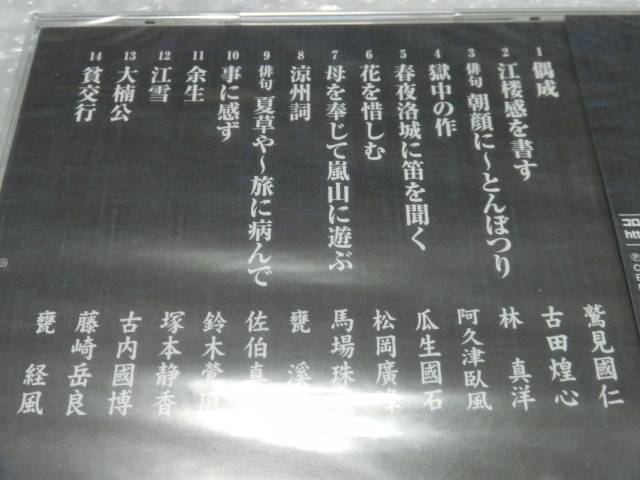 1 偶成 鷲見國仁
2 江楼感を書す 古田煌心
3 俳句 朝顔に〜とんぼつり 林 真洋
4 獄中の作 阿久津臥風
5 春夜洛城に笛を聞く 瓜生國石
6 花を惜しむ 松岡廣
7 母を奉じて嵐山に遊ぶ 馬場珠
8 涼州詞 甕 溪
9 俳句 夏草や〜旅に病んで 佐伯真
10 事に感ず 鈴木營風
11 余生 塚本静香
12 江雪 古内國博
13 大楠公 藤崎岳良
14 貧交行 甕 経風